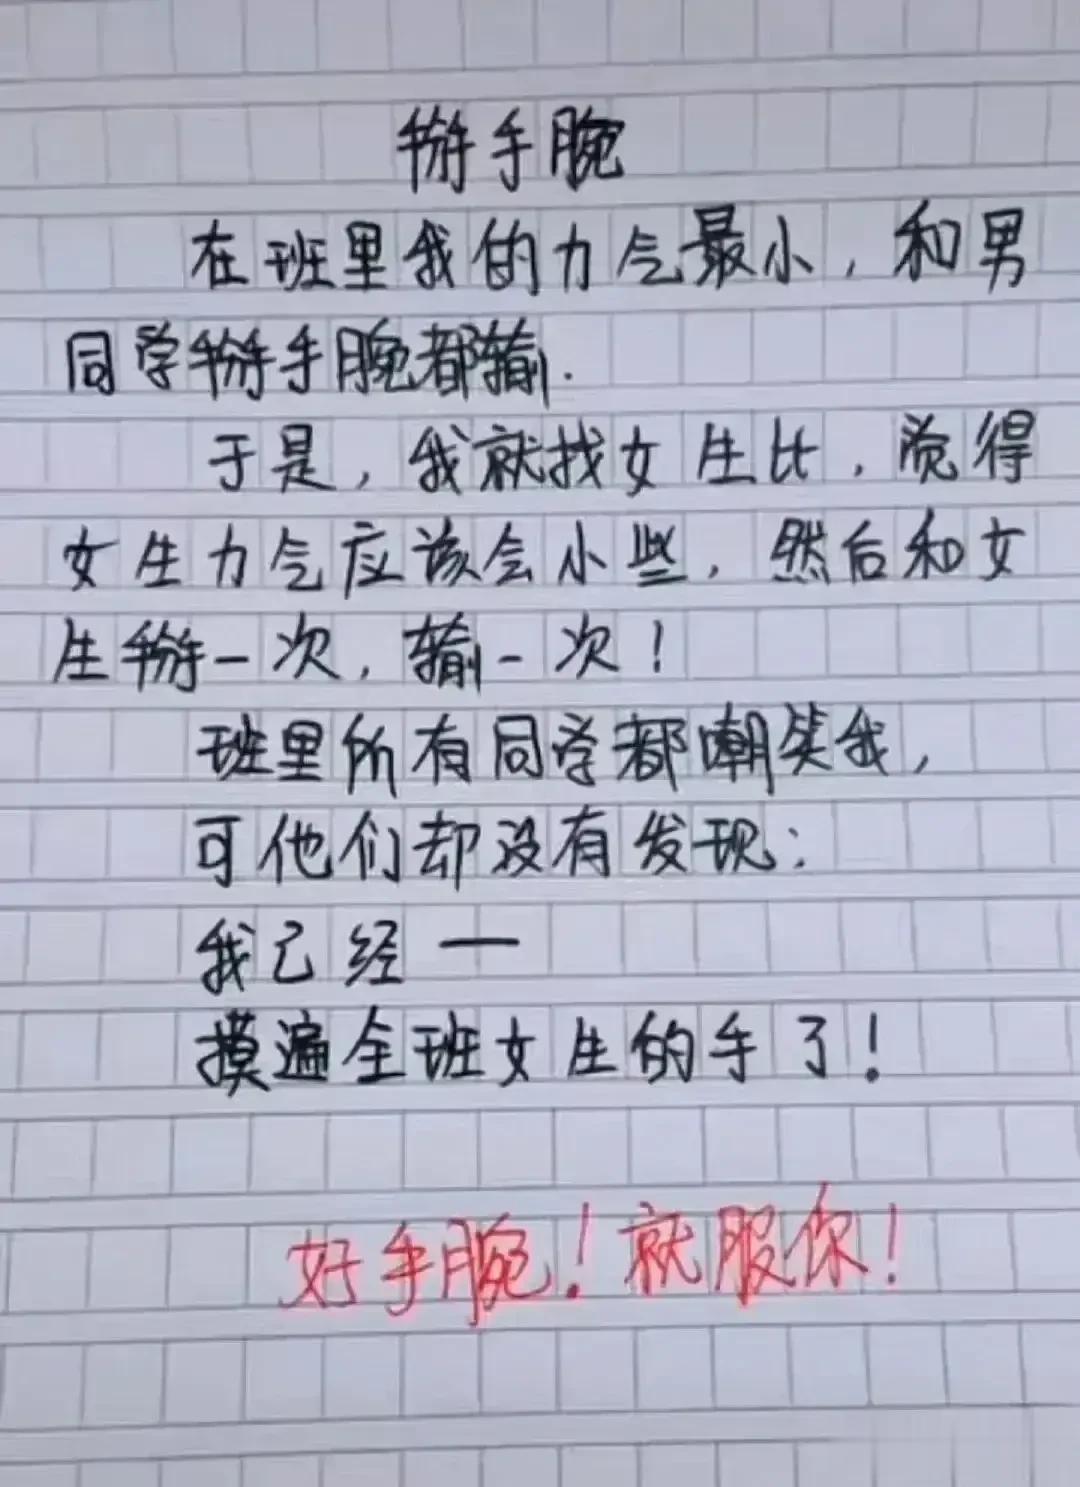 掰手腕
在班里我的力气最小，和男
同学掰手腕都输.
于是，我就找女生比，觉得
女生力气应该会小些，然后和女
生掰一次，输一次！
班里所有同学都嘲笑我，
可他们却没有发现：
我已经一
摸遍全班女生的手了！
好手腕！就服你！